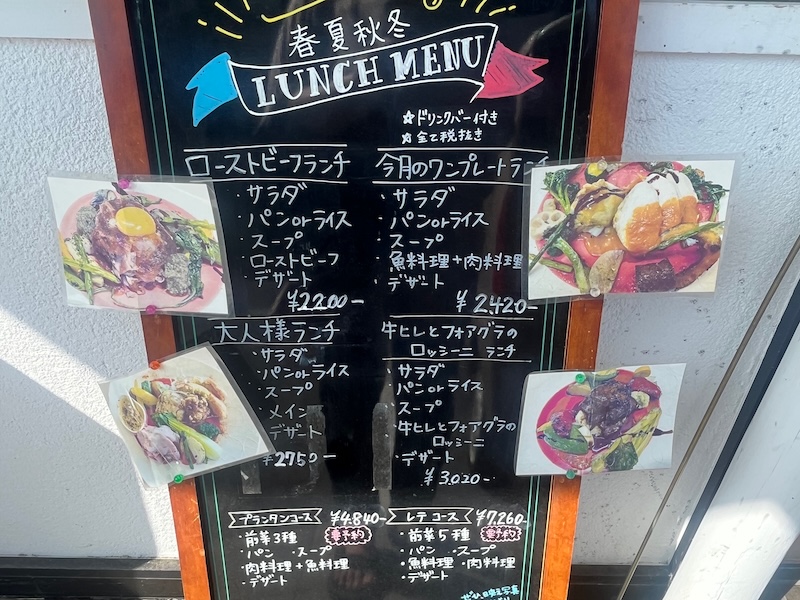 春夏秋冬
LUNCH MENU
☆ドリンクバー付き
☆全て税抜き
ローストビーフランチ
・サラダ
・パンorライス
・スープ
・ローストビーフ
・デザート
¥2200-
今月のワンプレートランチ
・サラダ
・パンorライス
・スープ
・魚料理+肉料理
・デザート
¥2,420-
大人様ランチ
・サラダ
・パンorライス
・スープ
・メイン
・デザート
¥2750-
牛ヒレとフォアグラの
ロッシーニ ランチ
・サラダ
・パンorライス
・スープ
・牛ヒレとフォアグラの
ロッシーニ
・デザート
¥3,020-
プランタンコース ¥4.840-
・前菜3種 要予約
・パン ・スープ
・肉料理+魚料理
・デザート
レテコース ¥7,260-
・前菜5種 要予約
・パン ・スープ
・魚料理 ・肉料理
・デザート